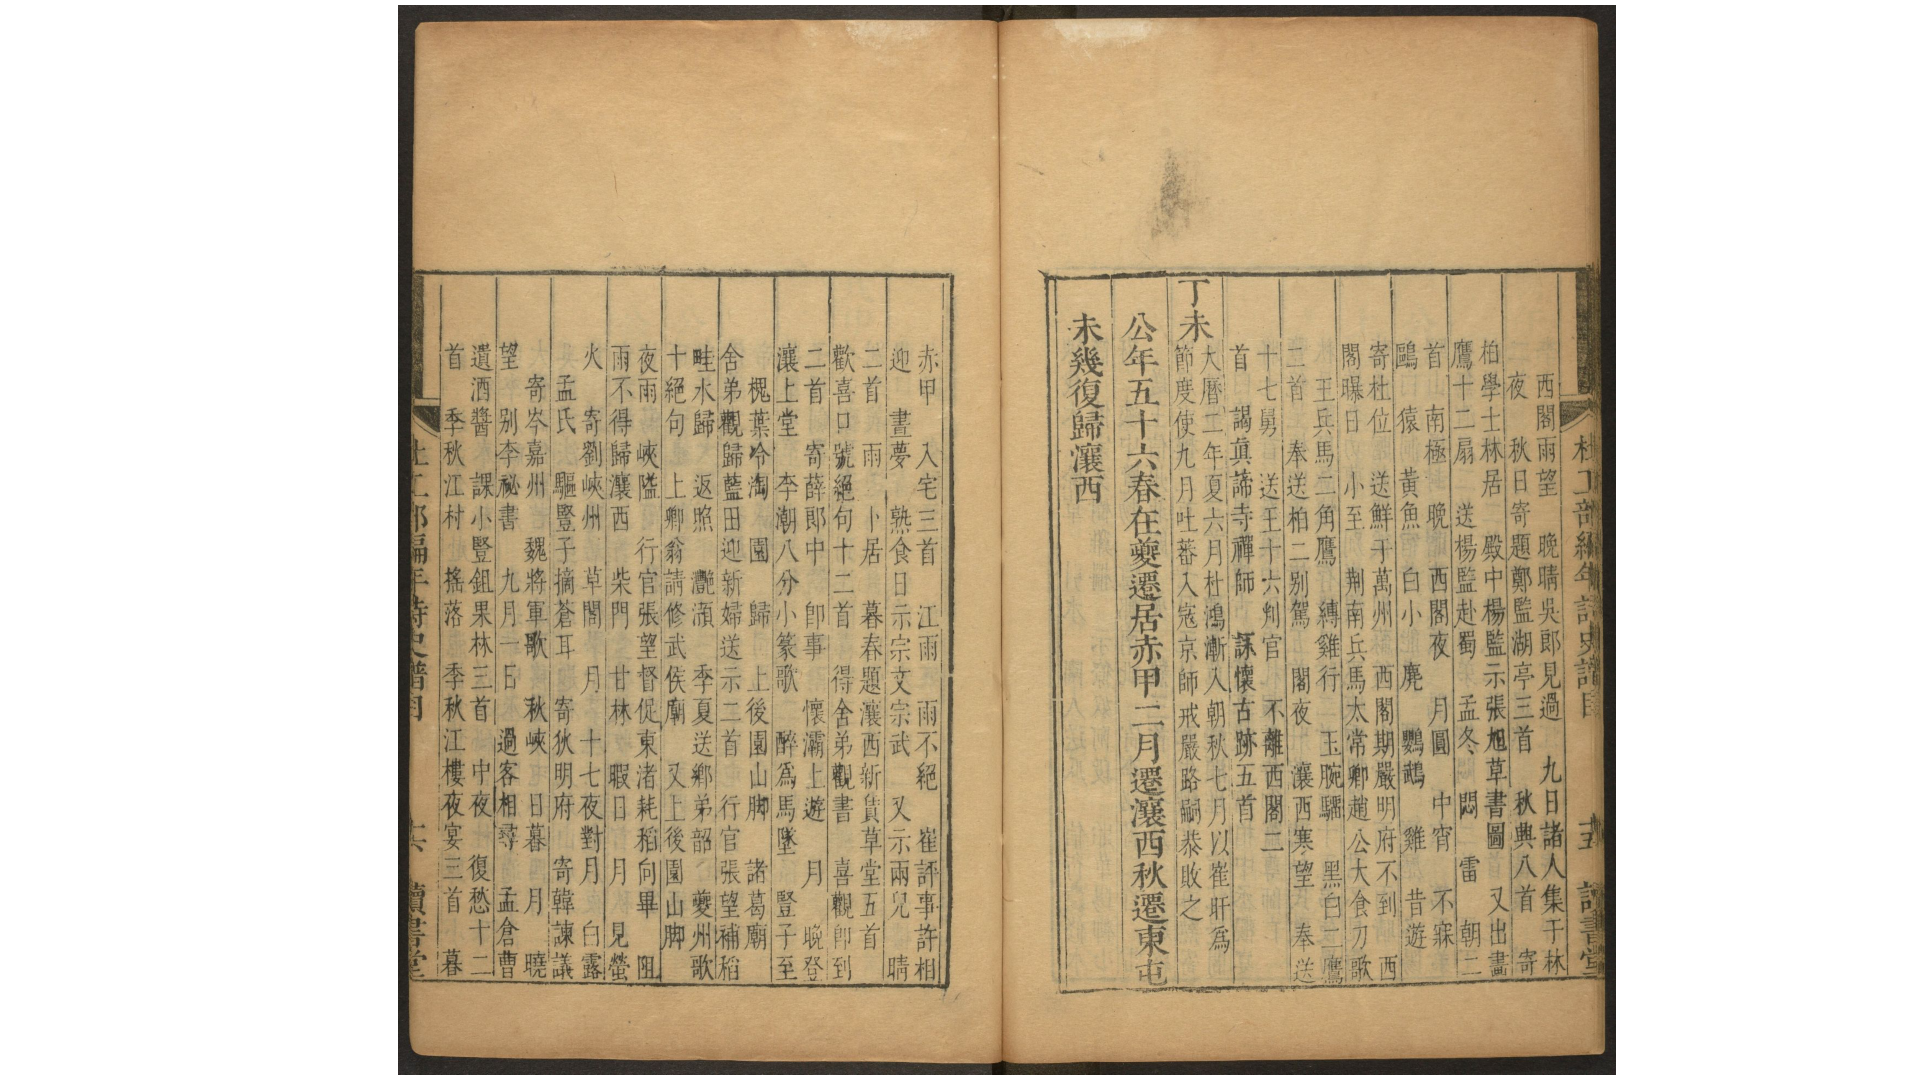 西閣雨望　晚晴吳郎見過　九日諸人集于林
夜　秋日寄題鄭監湖亭三首　秋興八首　寄
柏學士林居　殿中楊監示張旭草書圖　又出畫
鷹十二扇　送楊監赴蜀　孟冬　悶　雷　朝二
首　南極　晚　西閣夜　月圓　中宵　不寐
鷗　猿　黃魚　白小　麂　鸚鵡　雞　昔遊
寄杜位　送鮮于萬州　西閣期嚴明府不到　西
閣曝日　小至　荆南兵馬太常卿趙公大食刀歌
王兵馬二角鷹　縛雞行　玉腕騮　黑白二鷹
二首　奉送柏二别駕　閣夜　瀼西寒望　奉送
十七舅　送王十六判官　不離西閣二
首　謁真諦寺禪師　詠懷古跡五首
丁未
大曆二年夏六月杜鴻漸入朝秋七月以崔旰為
節度使九月吐蕃入寇京師戒嚴路嗣恭敗之
公年五十六春在夔遷居赤甲二月遷瀼西秋遷東屯
未幾復歸瀼西
赤甲　入宅三首　江雨　雨不絕　崔評事許相
迎　晝夢　熟食日示宗文宗武　又示兩兒　晴
二首　雨　卜居　暮春題瀼西新賃草堂五首
歡喜口號絕句十二首　得舍弟觀書　喜觀即到
二首　寄薛郎中　即事　懷灞上遊　月　晚登
瀼上堂　李潮八分小篆歌　醉為馬墜　豎子至
槐葉冷淘　園　歸　上後園山脚　諸葛廟
舍弟觀歸藍田迎新婦送示二首　行官張望補稻
畦水歸　返照　灩澦　季夏送鄉弟韶　夔州歌
十絕句　上卿翁請修武侯廟　又上後園山脚
夜雨　峽隘　行官張望督促東渚耗稻向畢　阻
雨不得歸瀼西　柴門　甘林　暇日　月　見螢
火　寄劉峽州　草閣　月　十七夜對月　白露
孟氏　驅豎子摘蒼耳　寄狄明府　寄韓諫議
寄岑嘉州　魏將軍歌　秋峽　日暮　月　曉
望　别李秘書　九月一日　過客相尋　孟倉曹
遺酒醬　課小豎鉏果林三首　中夜　復愁十二
首　季秋江村　搖落　季秋江樓夜宴三首　暮
杜工部編年詩史譜目
六　讀書堂